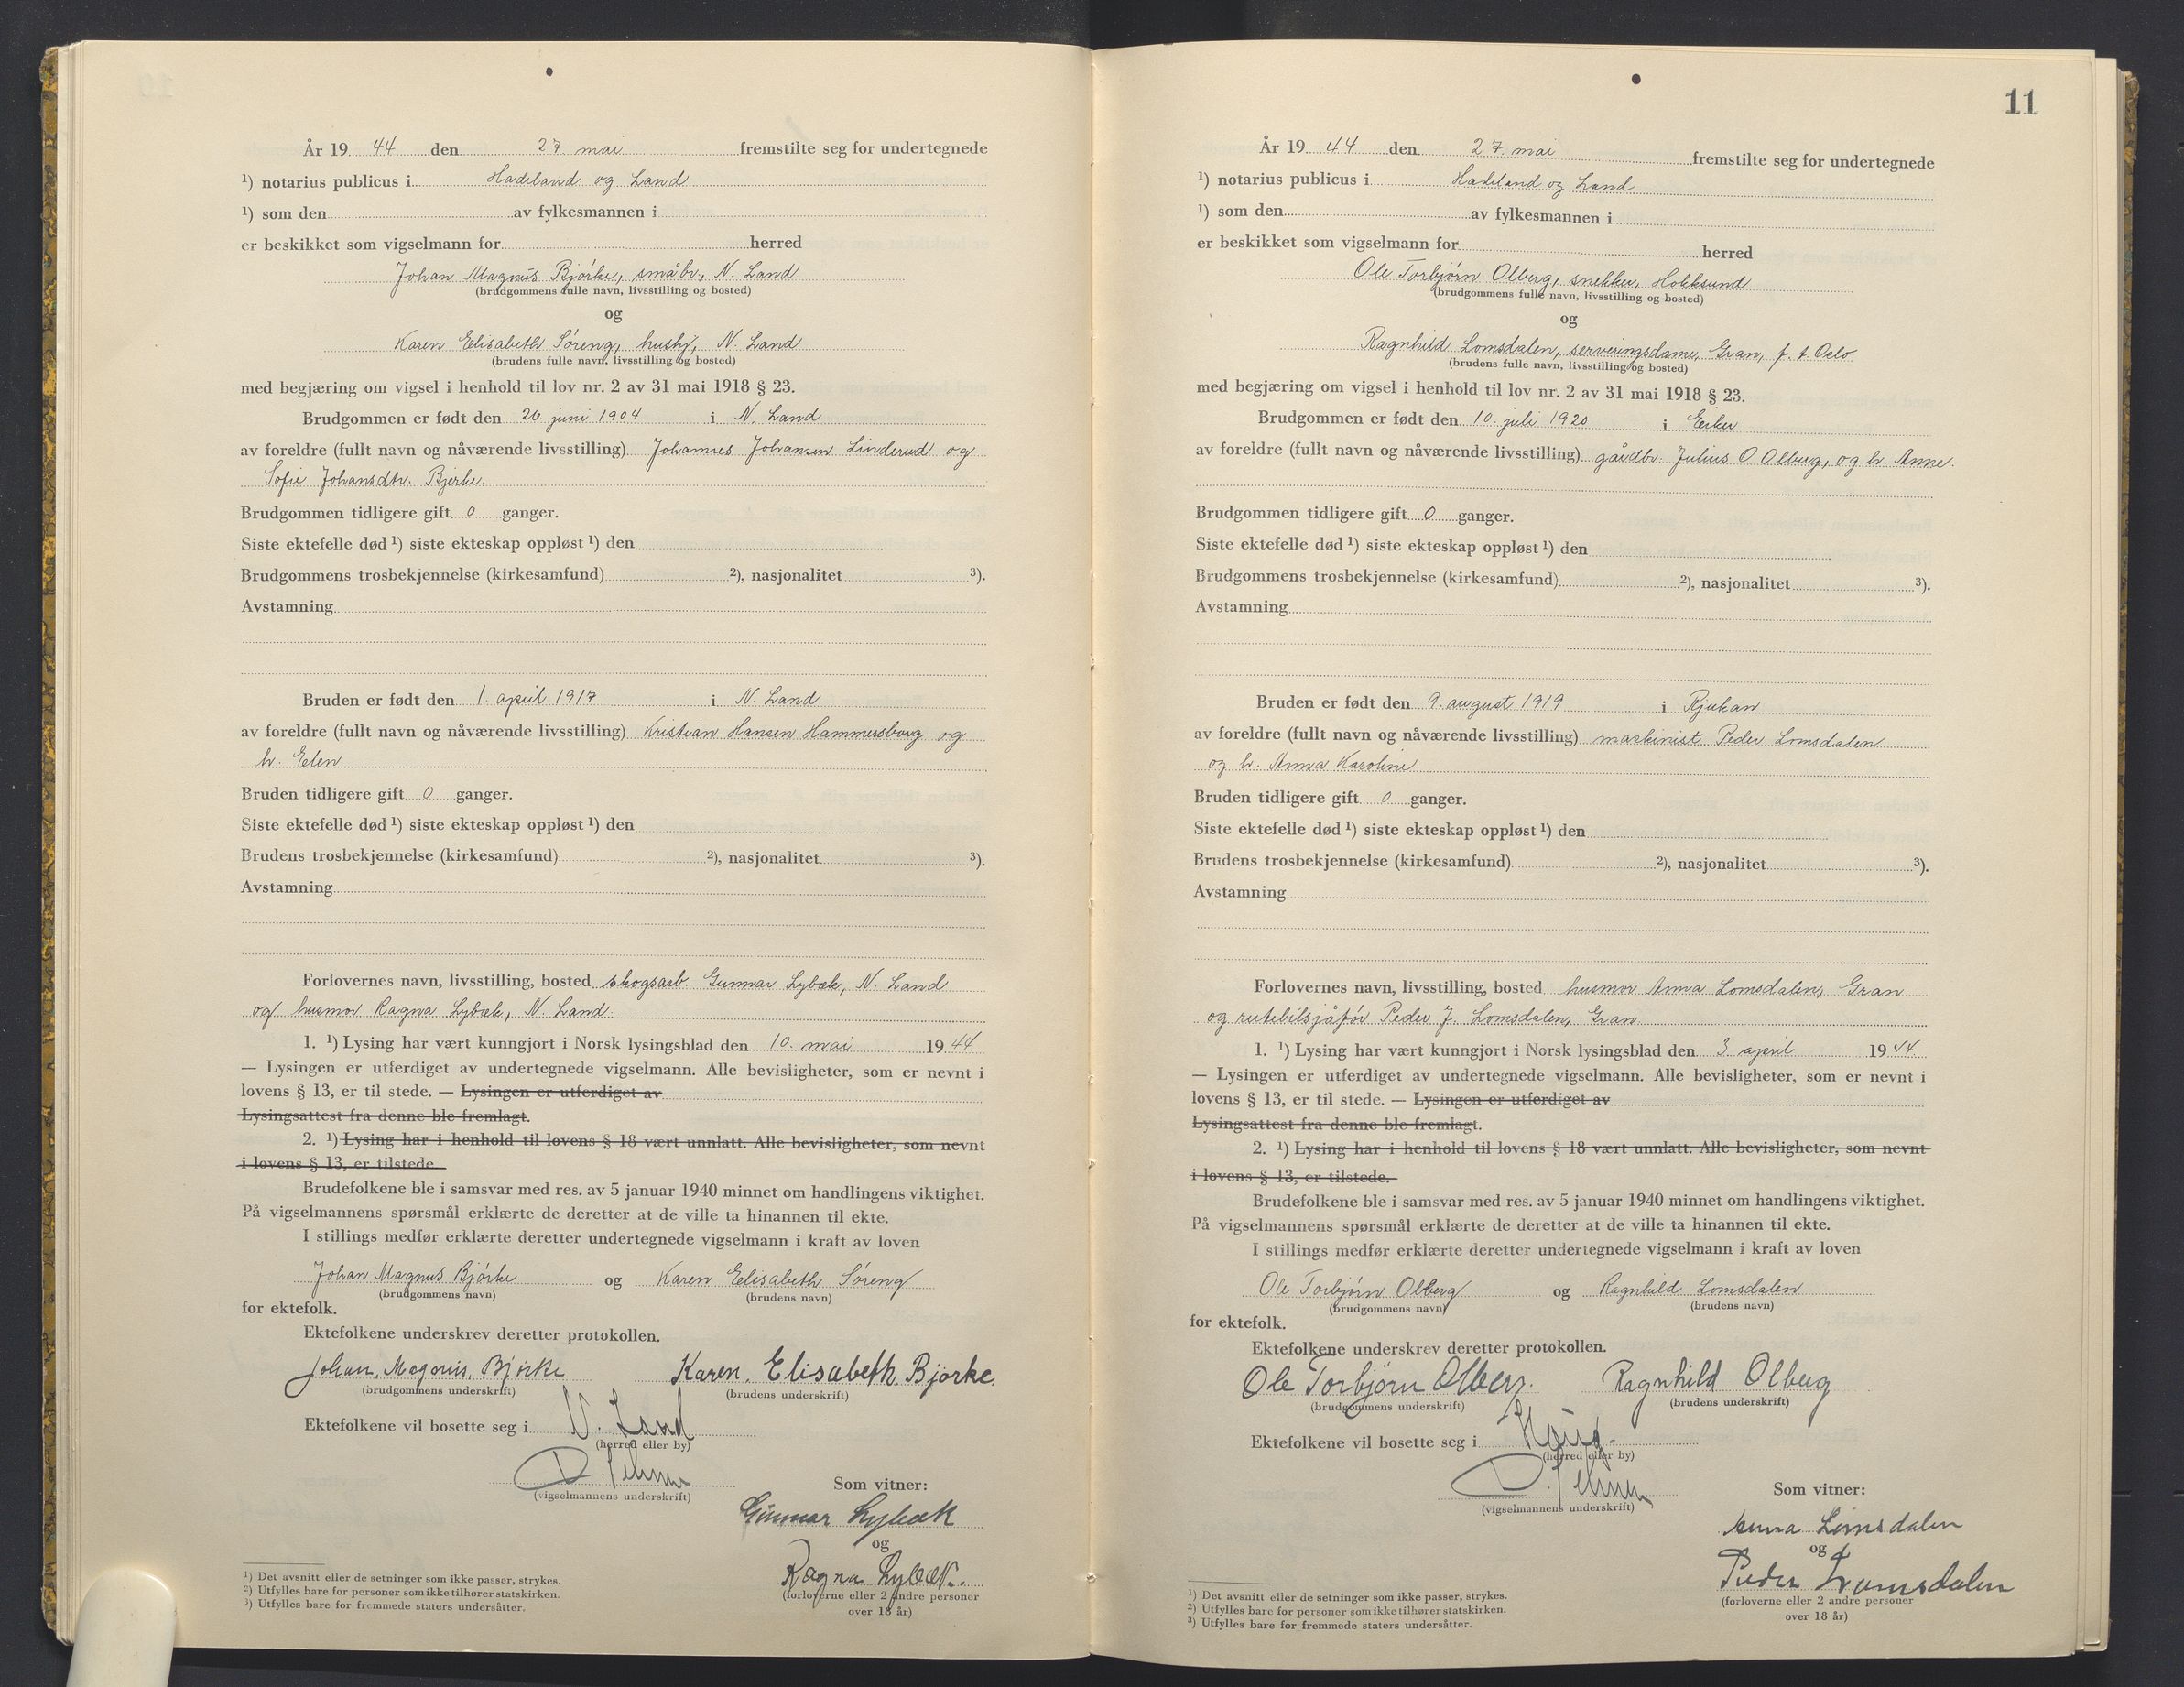 År 19 44 den 27. mai fremstilte seg for undertegnede
¹) notarius publicus i Hadeland og Land
¹) som den av fylkesmannen i
er beskikket som vigselmann for herred
Johan Magnus Bjørke, småbr., N. Land
(brudgommens fulle navn, livsstilling og bosted)
og
Karen Elisabeth Søreng, hushj, N. Land
(brudens fulle navn, livsstilling og bosted)
med begjæring om vigsel i henhold til lov nr. 2 av 31 mai 1918 § 23.
Brudgommen er født den 26 juni 1904 i N. Land
av foreldre (fullt navn og nåværende livsstilling) Johannes Johansen Linderud og
Sofie Johansdtr. Bjerke.
Brudgommen tidligere gift 0 ganger.
Siste ektefelle død ¹) siste ekteskap oppløst ¹) den
Brudgommens trosbekjennelse (kirkesamfund) ²), nasjonalitet ³).
Avstamning
Bruden er født den 1. april 1917 i N. Land
av foreldre (fullt navn og nåværende livsstilling) Kristian Hansen Hammersborg og
h. Elen
Bruden tidligere gift 0 ganger.
Siste ektefelle død ¹) siste ekteskap oppløst ¹) den
Brudens trosbekjennelse (kirkesamfund) ²), nasjonalitet ³).
Avstamning
Forlovernes navn, livsstilling, bosted skogsarb. Gunnar Lybæk, N. Land
og husmor Ragna Lybæk, N. Land.
1. ¹) Lysing har vært kunngjort i Norsk lysingsblad den 10. mai 19 44
— Lysingen er utferdiget av undertegnede vigselmann. Alle bevisligheter, som er nevnt i
lovens § 13, er til stede. — Lysingen er utferdiget av
Lysingsattest fra denne ble fremlagt.
2. ¹) Lysing har i henhold til lovens § 18 vært unnlatt. Alle bevisligheter, som nevnt
i lovens § 13, er tilstede.
Brudefolkene ble i samsvar med res. av 5 januar 1940 minnet om handlingens viktighet.
På vigselmannens spørsmål erklærte de deretter at de ville ta hinannen til ekte.
I stillings medfør erklærte deretter undertegnede vigselmann i kraft av loven
Johan Magnus Bjørke og Karen Elisabeth Søreng
(brudgommens navn) (brudens navn)
for ektefolk.
Ektefolkene underskrev deretter protokollen.
Johan, Magnus, Bjørke Karen, Elisabeth. Bjørke.
(brudgommens underskrift) (brudens underskrift)
Ektefolkene vil bosette seg i N. Land
(herred eller by)
(vigselmannens underskrift)
Som vitner:
Gunnar Lybæk
og
Ragna Lybæk.
(forloverne eller 2 andre personer
over 18 år)
¹) Det avsnitt eller de setninger som ikke passer, strykes.
²) Utfylles bare for personer som ikke tilhører statskirken.
³) Utfylles bare for fremmede staters undersåtter.
11
År 19 44 den 27. mai fremstilte seg for undertegnede
¹) notarius publicus i Hadeland og Land
¹) som den av fylkesmannen i
er beskikket som vigselmann for herred
Ole Torbjørn Olberg, snekker, Hokksund
(brudgommens fulle navn, livsstilling og bosted)
og
Ragnhild Lomsdalen, serveringsdame, Gran, f. t. Oslo
(brudens fulle navn, livsstilling og bosted)
med begjæring om vigsel i henhold til lov nr. 2 av 31 mai 1918 § 23.
Brudgommen er født den 10. juli 1920 i Eiker
av foreldre (fullt navn og nåværende livsstilling) gårdbr. Julius O Olberg, og h. Anne.
Brudgommen tidligere gift 0 ganger.
Siste ektefelle død ¹) siste ekteskap oppløst ¹) den
Brudgommens trosbekjennelse (kirkesamfund) ²), nasjonalitet ³).
Avstamning
Bruden er født den 9. august 1919 i Rjukan
av foreldre (fullt navn og nåværende livsstilling) maskinist Peder Lomsdalen
og h. Anna Karoline
Bruden tidligere gift 0 ganger.
Siste ektefelle død ¹) siste ekteskap oppløst ¹) den
Brudens trosbekjennelse (kirkesamfund) ²), nasjonalitet ³).
Avstamning
Forlovernes navn, livsstilling, bosted husmor Anna Lomsdalen, Gran
og rutebilsjåfør Peder J. Lomsdalen, Gran
1. ¹) Lysing har vært kunngjort i Norsk lysingsblad den 3. april 19 44
— Lysingen er utferdiget av undertegnede vigselmann. Alle bevisligheter, som er nevnt i
lovens § 13, er til stede. — Lysingen er utferdiget av
Lysingsattest fra denne ble fremlagt.
2. ¹) Lysing har i henhold til lovens § 18 vært unnlatt. Alle bevisligheter, som nevnt
i lovens § 13, er tilstede.
Brudefolkene ble i samsvar med res. av 5 januar 1940 minnet om handlingens viktighet.
På vigselmannens spørsmål erklærte de deretter at de ville ta hinannen til ekte.
I stillings medfør erklærte deretter undertegnede vigselmann i kraft av loven
Ole Torbjørn Olberg og Ragnhild Lomsdalen
(brudgommens navn) (brudens navn)
for ektefolk.
Ektefolkene underskrev deretter protokollen.
Ole Torbjørn Olberg. Ragnhild Olberg
(brudgommens underskrift) (brudens underskrift)
Ektefolkene vil bosette seg i
(herred eller by)
(vigselmannens underskrift)
Som vitner:
Anna Lomsdalen
og
Peder Lomsdalen
(forloverne eller 2 andre personer
over 18 år)
¹) Det avsnitt eller de setninger som ikke passer, strykes.
²) Utfylles bare for personer som ikke tilhører statskirken.
³) Utfylles bare for fremmede staters undersåtter.